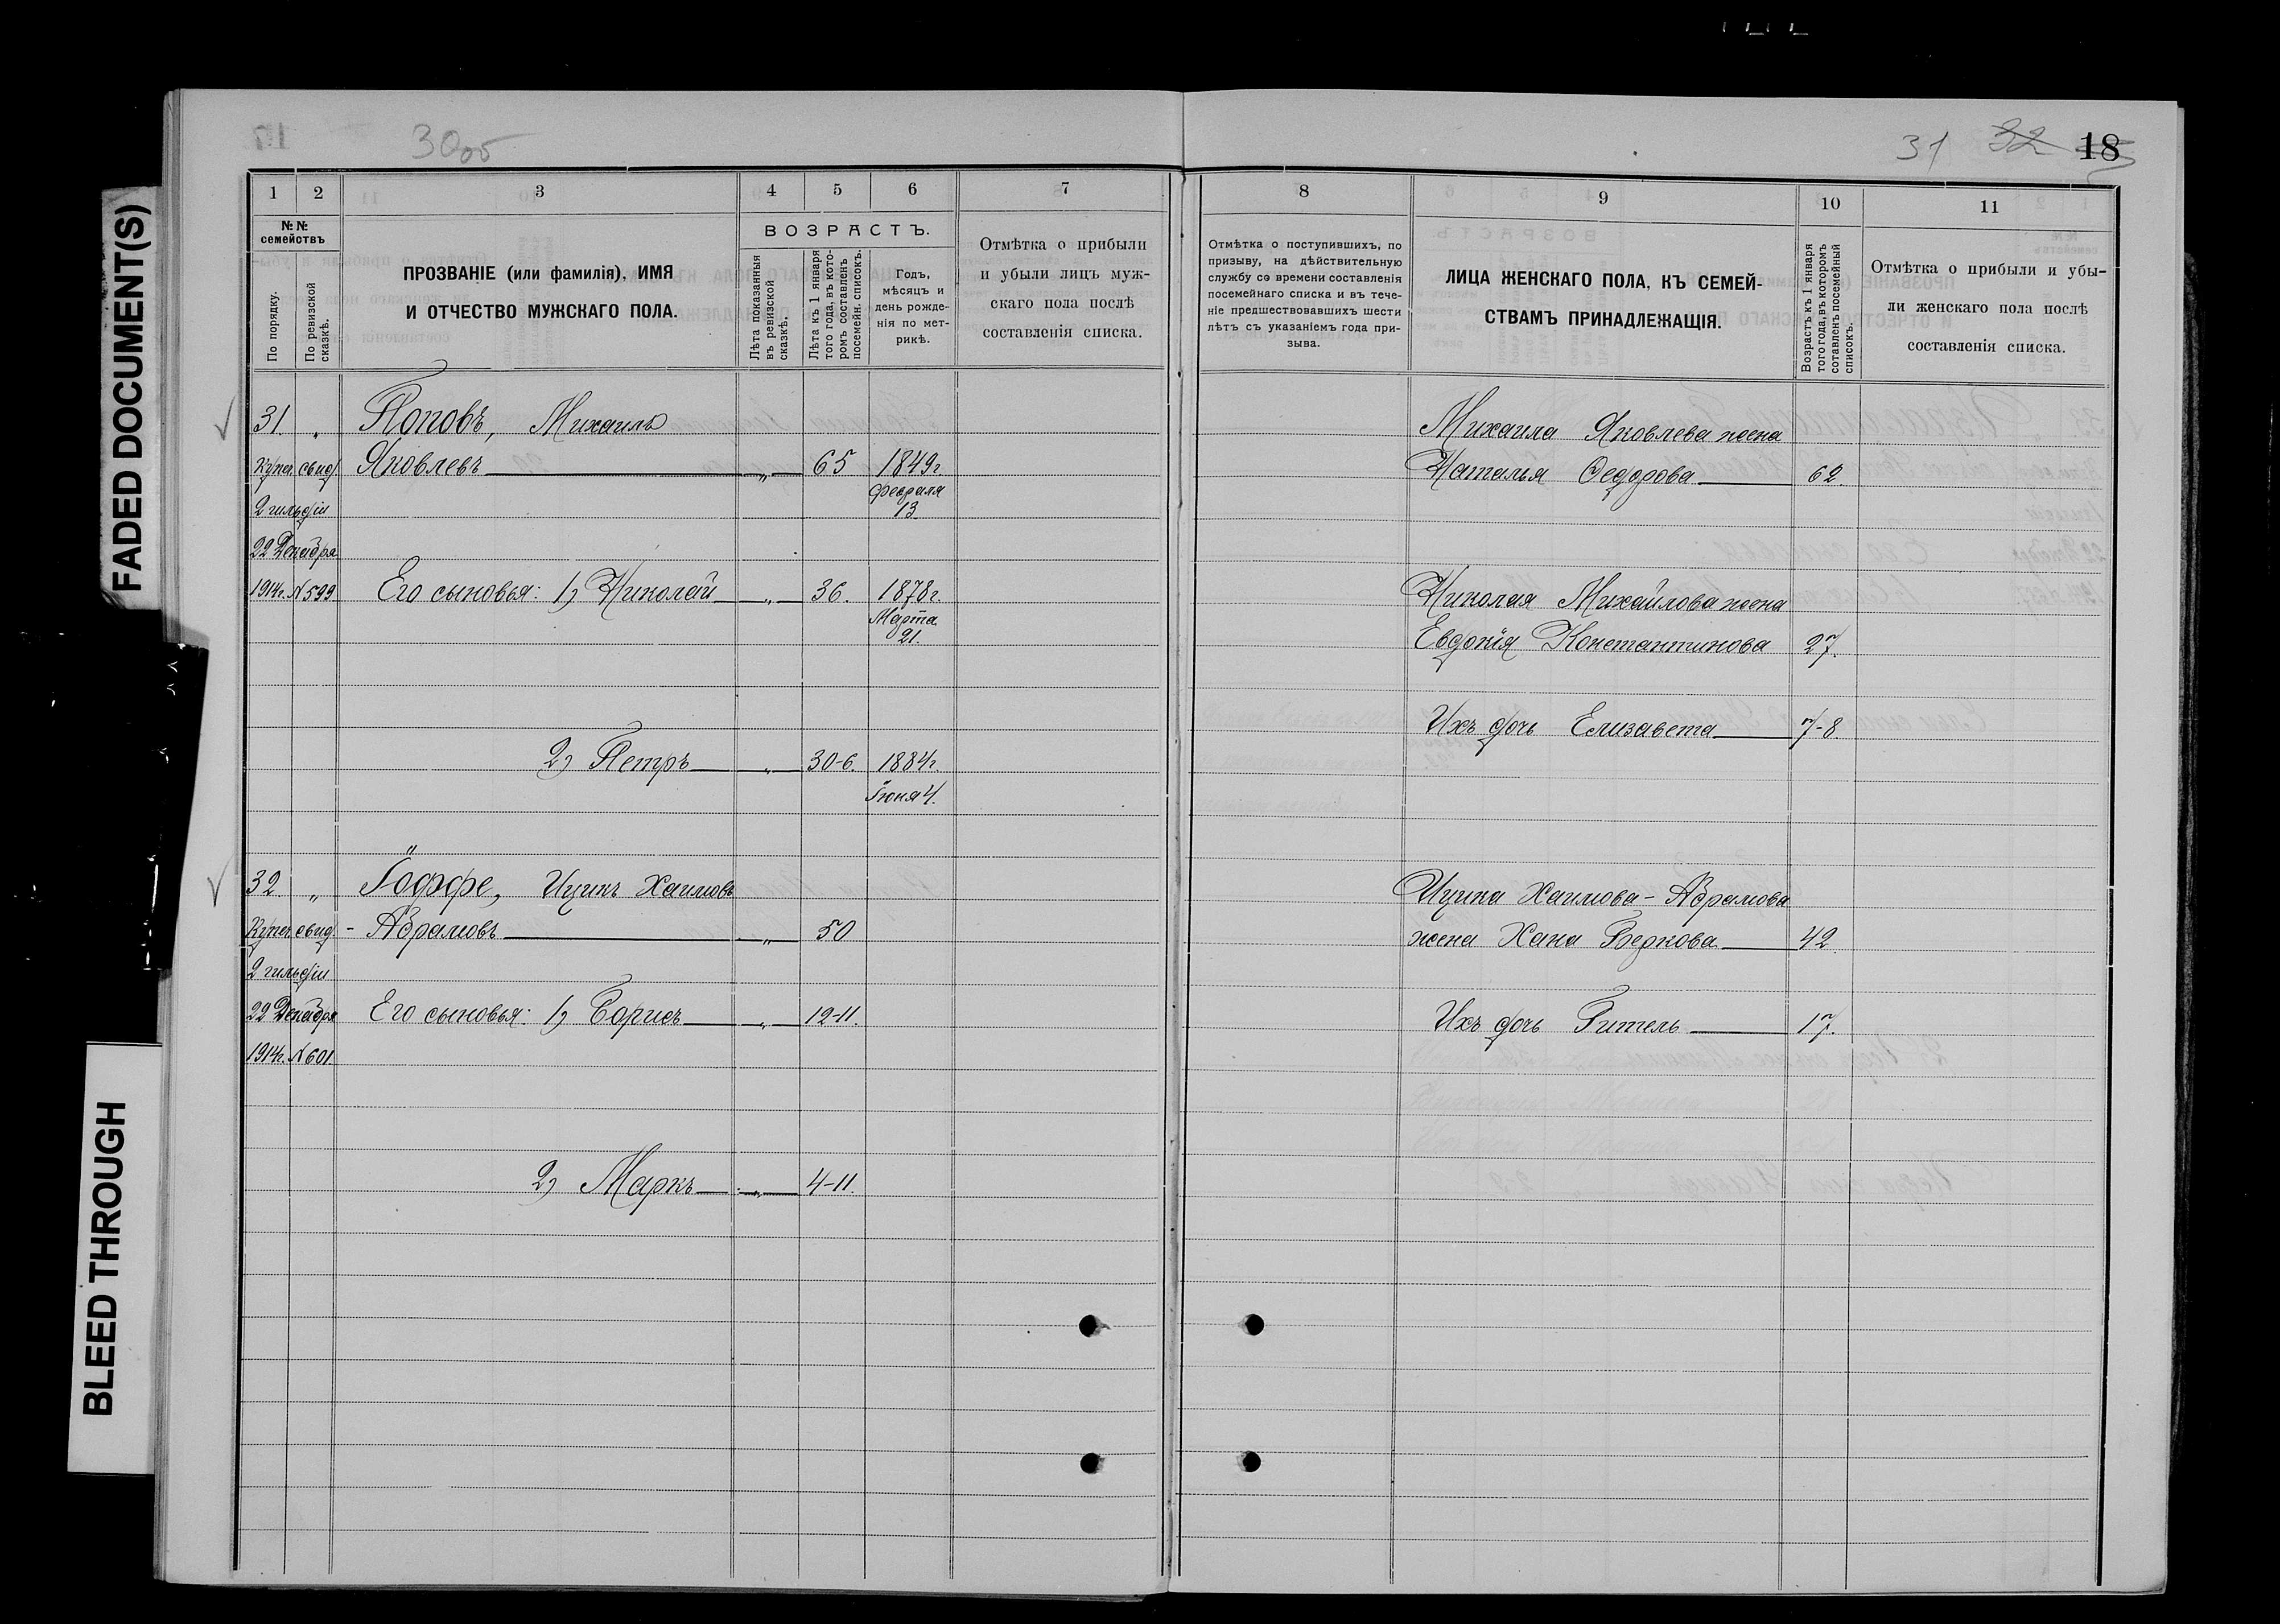 FADED DOCUMENT(S)
BLEED THROUGH
30об
31 32 18
1 2 3 4 5 6 7
№№ семействъ
По порядку.
По ревизской сказкѣ.
ПРОЗВАНІЕ (или фамилія), ИМЯ
И ОТЧЕСТВО МУЖСКАГО ПОЛА.
ВОЗРАСТЪ.
Лѣта показанныя
въ ревизской
сказкѣ.
Лѣта къ 1 января
того года, въ кото-
ромъ составленъ
посемейн. списокъ.
Годъ,
мѣсяцъ и
день рожде-
нія по мет-
рикѣ.
Отмѣтка о прибыли
и убыли лицъ муж-
скаго пола послѣ
составленія списка.
31. " Поповъ, Михаилъ
Купеч. свид. Яковлевъ " 65 1849г.
2 гильдіи Февраля
13.
22 Декабря
1914г. №599 Его сыновья: 1) Николай " 36. 1878г.
Марта
21.
2) Петръ " 30-6. 1884г.
Іюня 4.
32 " Іоффе, Ицикъ Хаимовъ
Купеч. свид. - Абрамовъ " 50
2 гильдіи
22 Декабря Его сыновья: 1) Борисъ " 12-11.
1914г. №601.
2) Маркъ " 4-11.
8 9 10 11
Отмѣтка о поступившихъ, по
призыву, на дѣйствительную
службу со времени составленія
посемейнаго списка и въ тече-
ніе предшествовавшихъ шести
лѣтъ съ указаніемъ года при-
зыва.
ЛИЦА ЖЕНСКАГО ПОЛА, КЪ СЕМЕЙ-
СТВАМЪ ПРИНАДЛЕЖАЩІЯ.
Возрастъ къ 1 января
того года, въ которомъ
сотавленъ посемейный
списокъ.
Отмѣтка о прибыли и убы-
ли женскаго пола послѣ
составленія списка.
Михаила Яковлева жена
Наталья Ѳедорова 62.
Николая Михайлова жена
Евдокія Константинова 27.
Ихъ дочь Елизавета 7-8.
Ицика Хаимова-Абрамова
жена Хана Беркова 42.
Ихъ дочь Гитель 17.